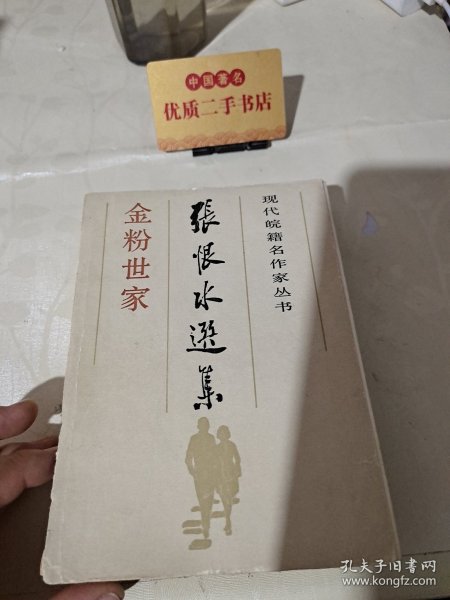 中国著名
优质二手书店
现代皖籍名作家丛书
張恨水選集
金粉世家
孔夫子旧书网
www.kongfz.com